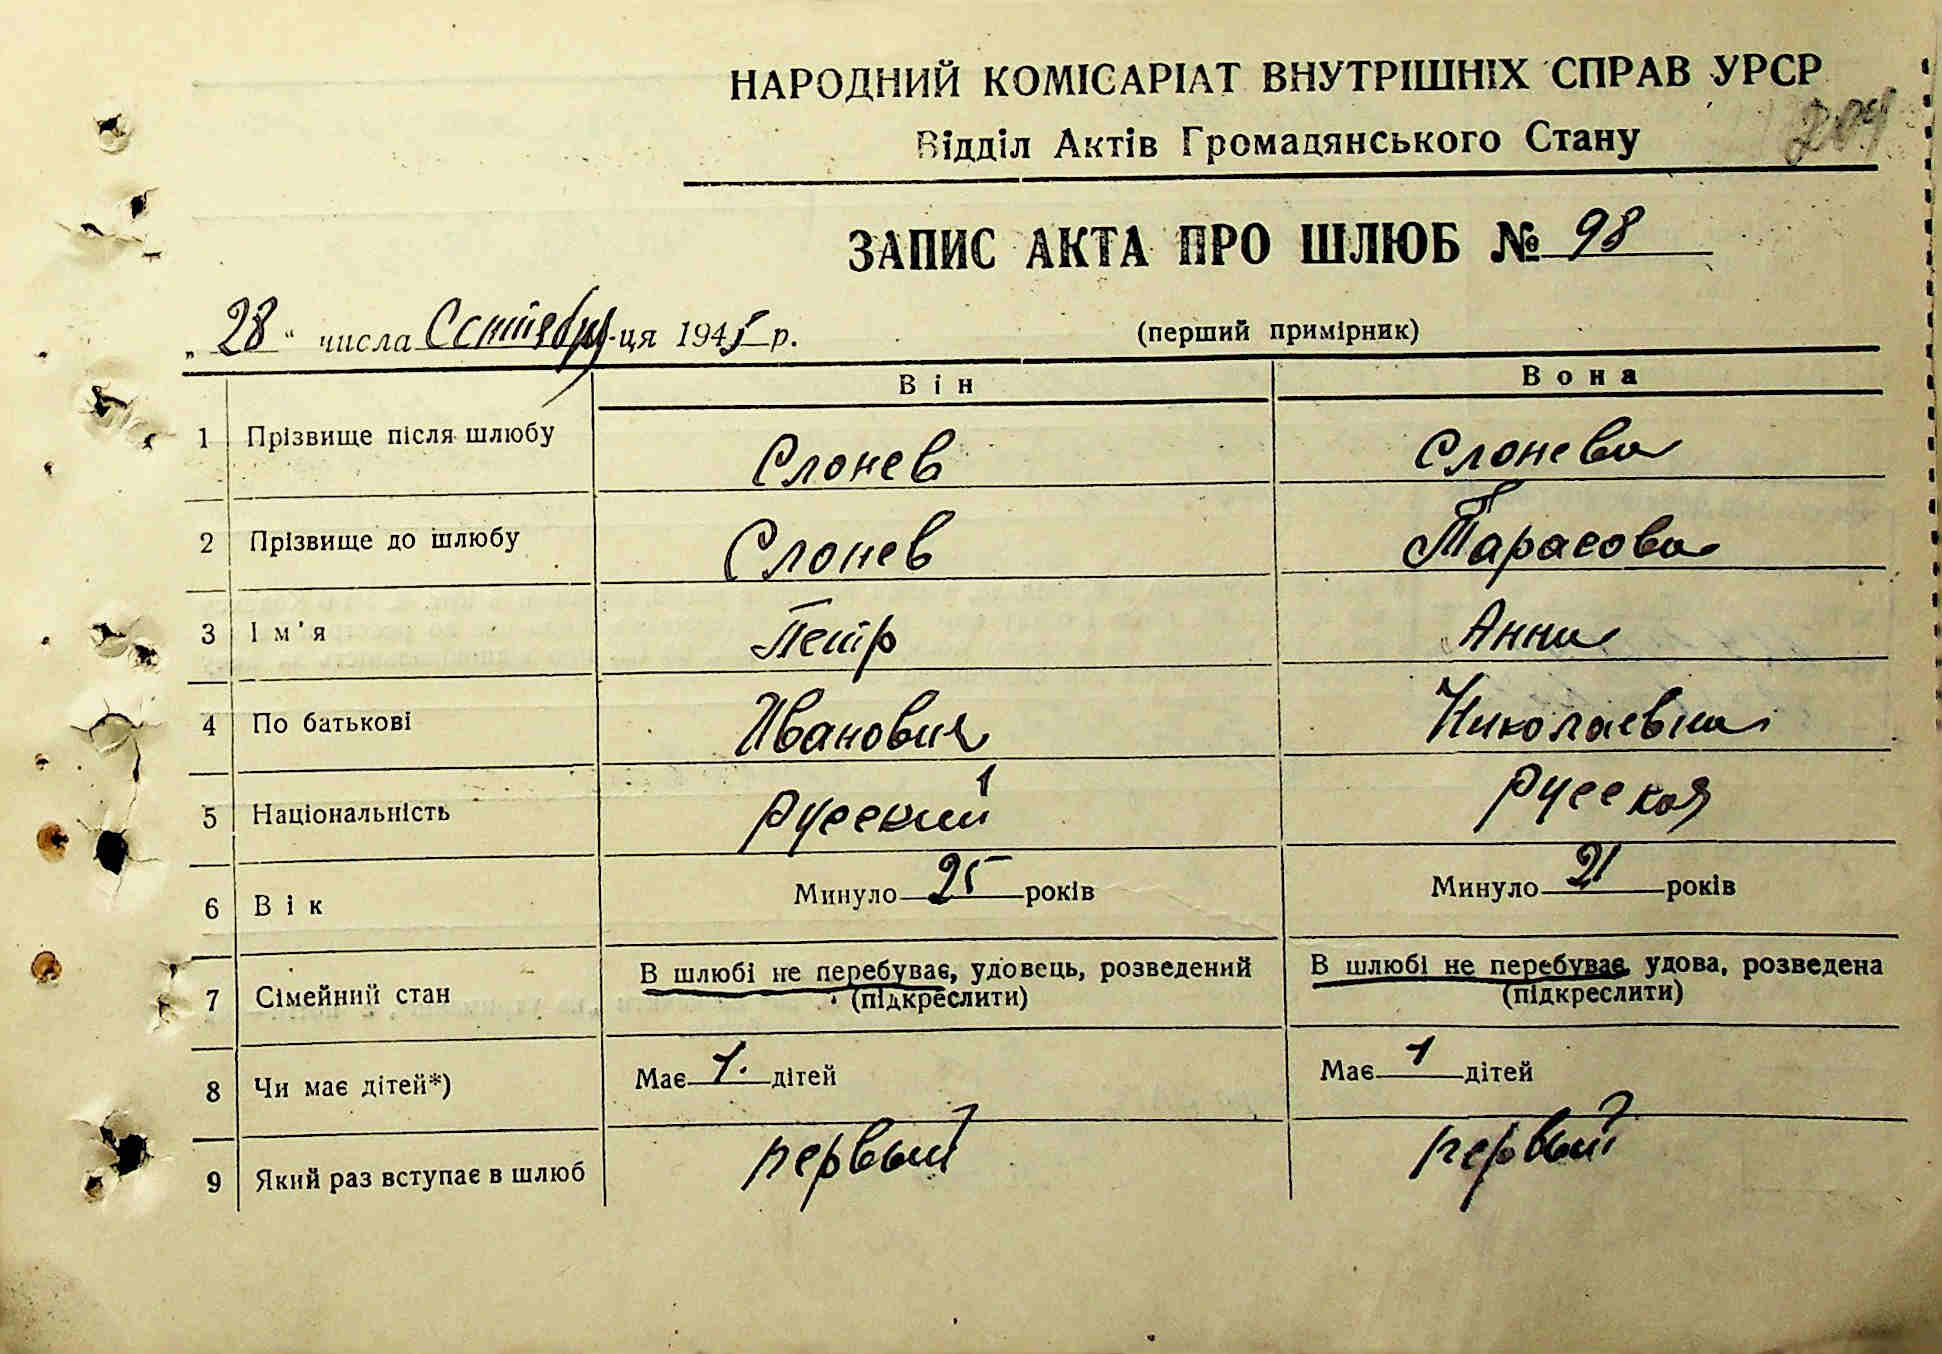 НАРОДНИЙ КОМІСАРІАТ ВНУТРІШНІХ СПРАВ УРСР
Відділ Актів Громадянського Стану
204
ЗАПИС АКТА ПРО ШЛЮБ № 98
„28“ числа Сентября-ця 1945 р. (перший примірник)
Він Вона
1 Прізвище після шлюбу Слонев Слонева
2 Прізвище до шлюбу Слонев Тарасова
3 Ім'я Петр Анна
4 По батькові Иванович Николаевна
5 Національність русский русская
6 Вік Минуло 25 років Минуло 21 років
7 Сімейний стан В шлюбі не перебуває, удовець, розведений В шлюбі не перебуває, удова, розведена
(підкреслити) (підкреслити)
8 Чи має дітей*) Має 1. дітей Має 1 дітей
9 Який раз вступає в шлюб первый первый